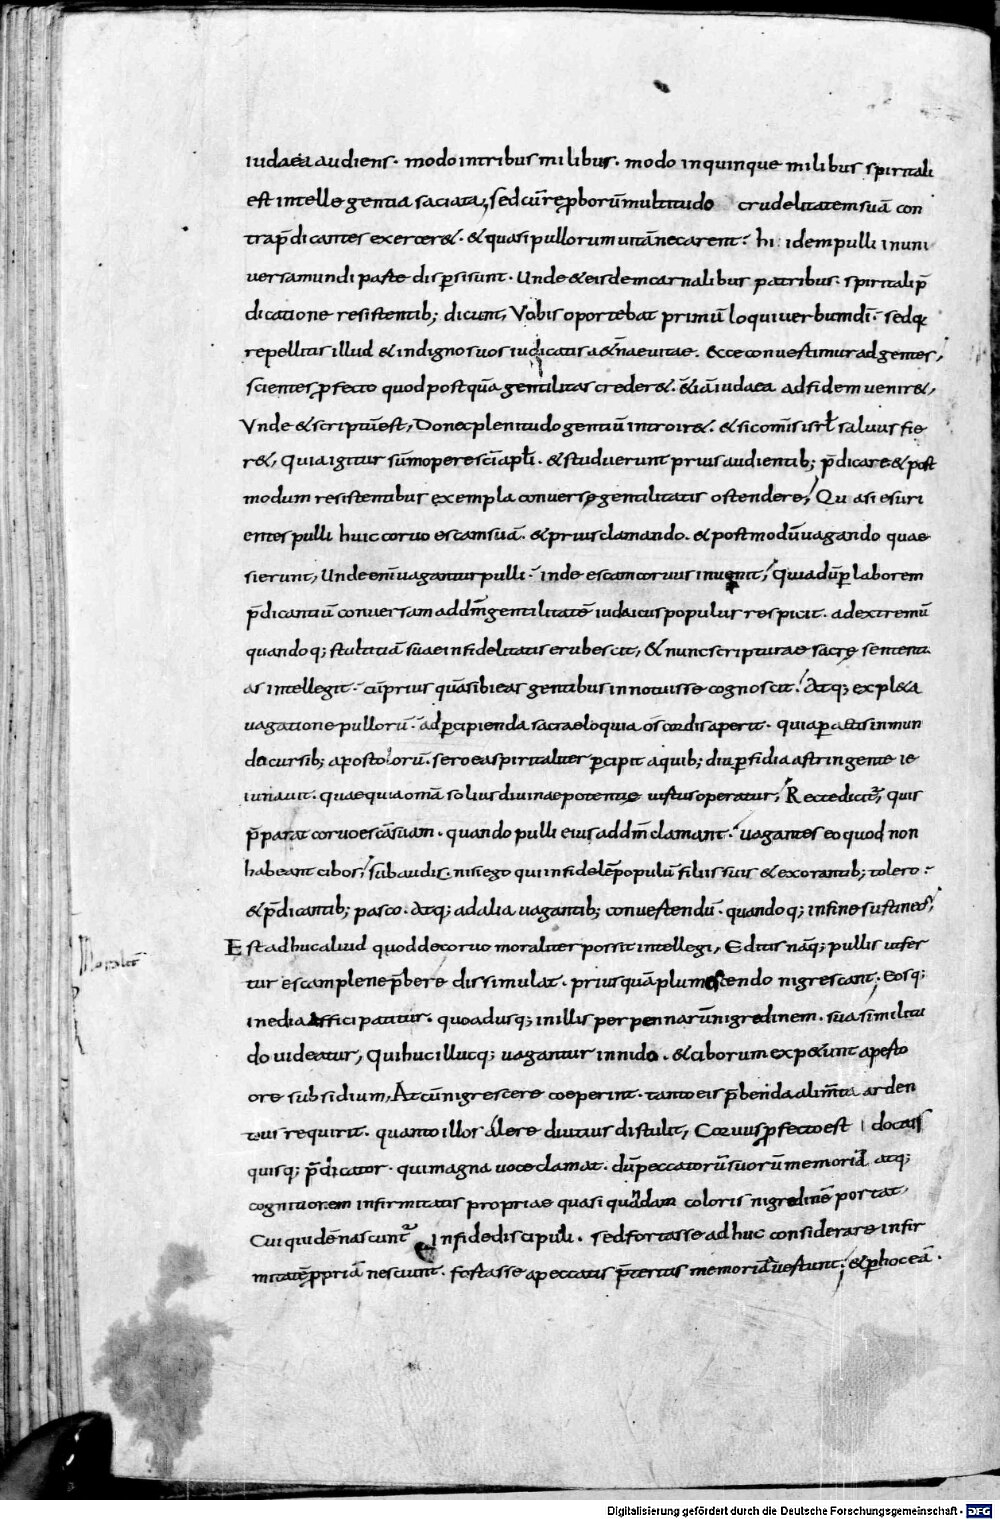 iudaea audiens· modo intribus milibus· modo inquinque milibus spiritali
est intellegentia saciata; sed cū rep̄borū multitudo crudelitatem suā con
trap̄dicantes exercer&· & quasi pullorum uitā necarent· hi idem pulli in uni
uersa mundi parte disp̄si sunt· Unde & eisdem carnalibus patribus· spiritali p̄
dicatione resistentib; dicunt, Vobis oportebat primū loqui uerbum dī· sed q̄
repellitis illud & indignos uos iudicatis aet̄nae uitae· Ecce conuertimur ad gentes,
scientes p̄fecto quod postquā gentilitas creder&· &iā iudaea ad fidem uenir&,
Vnde & scriptū est, Donec plenitudo gentiū introir&· & sic omīs isrł saluus fie
r&, Quia igitur sūmopere sc̄i apłi· & studuerunt prius audientib; p̄dicare & post
modum resistentibus exempla conuersę gentilitatis ostendere, Quasi esuri
entes pulli huic coruo escam suā· & prius clamando· & postmodū uagando quae
sierunt, Unde enī uagantur pulli· inde escam coruus inuenit, Quia dū p̄ laborem
p̄dicantiū conuersam ad dm̄ gentilitatē iudaicus populus respicit· ad extremū
quandoq; stultitiā suae infidelitatis erubescit, & nunc scripturae sacrę sententi
as intellegit· cū prius quā sibi eas gentibus innotuisse cognoscit· Atq; expl&a
uagatione pullorū· ad p̄cipienda sacra eloquia os cordis aperit· quia p̄actis in mun
do cursib; apostolorū· sero ea spiritaliter p̄cipit a quib; diu p̄fidia astringente ie
iunauit· quae quia omā solius diuinae potentię uirtus operatur, Recte dicit̄, quis
p̄parat coruo escā suam· quando pulli eius ad dm̄ clamant· uagantes eo quod non
habeant cibos, subaudis· nisi ego qui infidelē populū filiis suis & exorantib; tolero·
& p̄dicantib; pasco· Atq; ad alia uagantib; conuertendū· quandoq; in fine sustineo,
Est adhuc aliud quod de coruo moraliter possit intellegi, Editis nāq; pullis ut fer
Moralit̄
tur escam plene p̄bere dissimulat· priusquā plumescendo nigrescant· eosq;
inedia affici patitur· quoadusq; in illis per pennarū nigredinem· sua similitu
do uideatur, Qui huc illucq; uagantur in nido· & ciborum exp&unt aperto
ore subsidium, At cū nigrescere coeperint· tanto eis p̄benda alim̄ta arden
tius requirit· quanto illos alere diutius distulit, Coruus p̄fecto est doctus
quisq; p̄dicator· qui magna uoce clamat· dū peccatorū suorū memoriā atq;
cognitionem infirmitatis propriae quasi quādam coloris nigredinē portat·
Cui quidē nascunt̄ in fide discipuli· sed fortasse adhuc considerare infir
mitatē p̄priā nesciunt· fortasse a peccatis p̄teritis memoriā uertunt· & p̄ hoc eā·
Digitalisierung gefördert durch die Deutsche Forschungsgemeinschaft - DFG